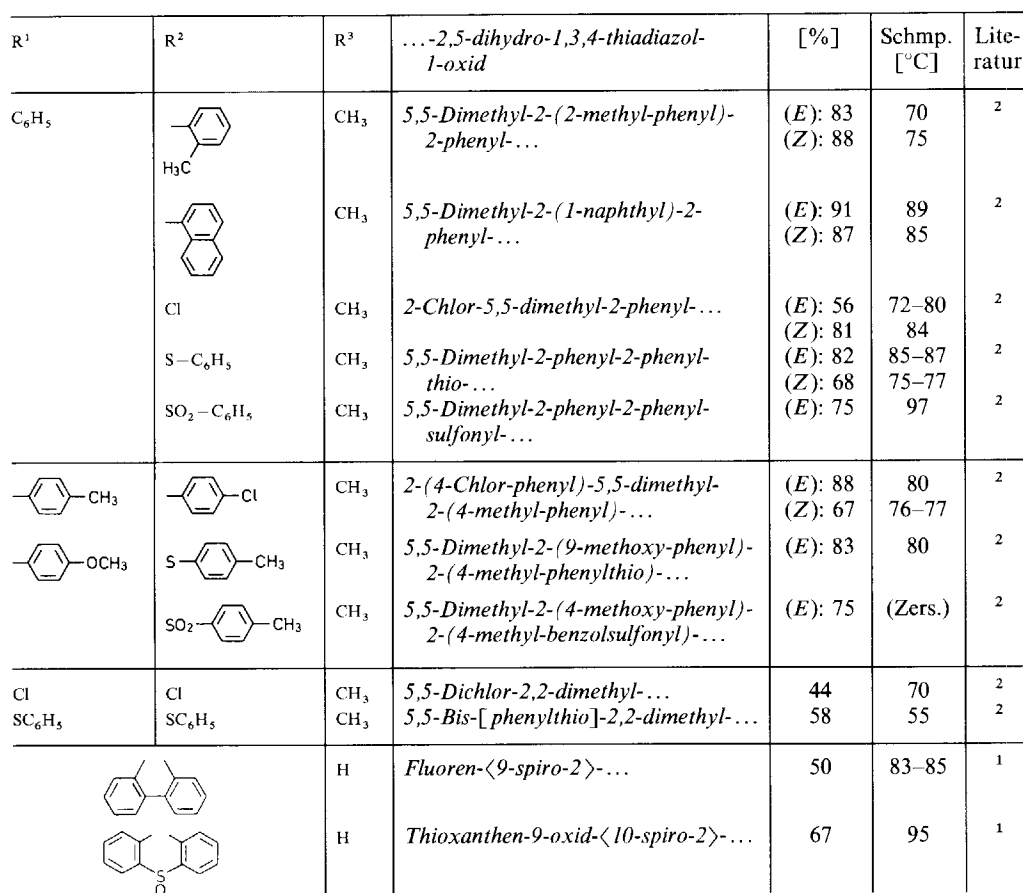 R¹ R² R³ ...-2,5-dihydro-1,3,4-thiadiazol- [%] Schmp. Lite-
1-oxid [°C] ratur
C₆H₅ CH₃ 5,5-Dimethyl-2-(2-methyl-phenyl)- (E): 83 70 ²
2-phenyl-... (Z): 88 75
H₃C
CH₃ 5,5-Dimethyl-2-(1-naphthyl)-2- (E): 91 89 ²
phenyl-... (Z): 87 85
Cl CH₃ 2-Chlor-5,5-dimethyl-2-phenyl-... (E): 56 72–80 ²
(Z): 81 84
S–C₆H₅ CH₃ 5,5-Dimethyl-2-phenyl-2-phenyl- (E): 82 85–87 ²
thio-... (Z): 68 75–77
SO₂–C₆H₅ CH₃ 5,5-Dimethyl-2-phenyl-2-phenyl- (E): 75 97 ²
sulfonyl-...
CH₃ Cl CH₃ 2-(4-Chlor-phenyl)-5,5-dimethyl- (E): 88 80 ²
2-(4-methyl-phenyl)-... (Z): 67 76–77
OCH₃ S CH₃ CH₃ 5,5-Dimethyl-2-(9-methoxy-phenyl)- (E): 83 80 ²
2-(4-methyl-phenylthio)-...
SO₂ CH₃ CH₃ 5,5-Dimethyl-2-(4-methoxy-phenyl)- (E): 75 (Zers.) ²
2-(4-methyl-benzolsulfonyl)-...
Cl Cl CH₃ 5,5-Dichlor-2,2-dimethyl-... 44 70 ²
SC₆H₅ SC₆H₅ CH₃ 5,5-Bis-[phenylthio]-2,2-dimethyl-... 58 55 ²
H Fluoren-⟨9-spiro-2⟩-... 50 83–85 ¹
H Thioxanthen-9-oxid-⟨10-spiro-2⟩-... 67 95 ¹
S
O